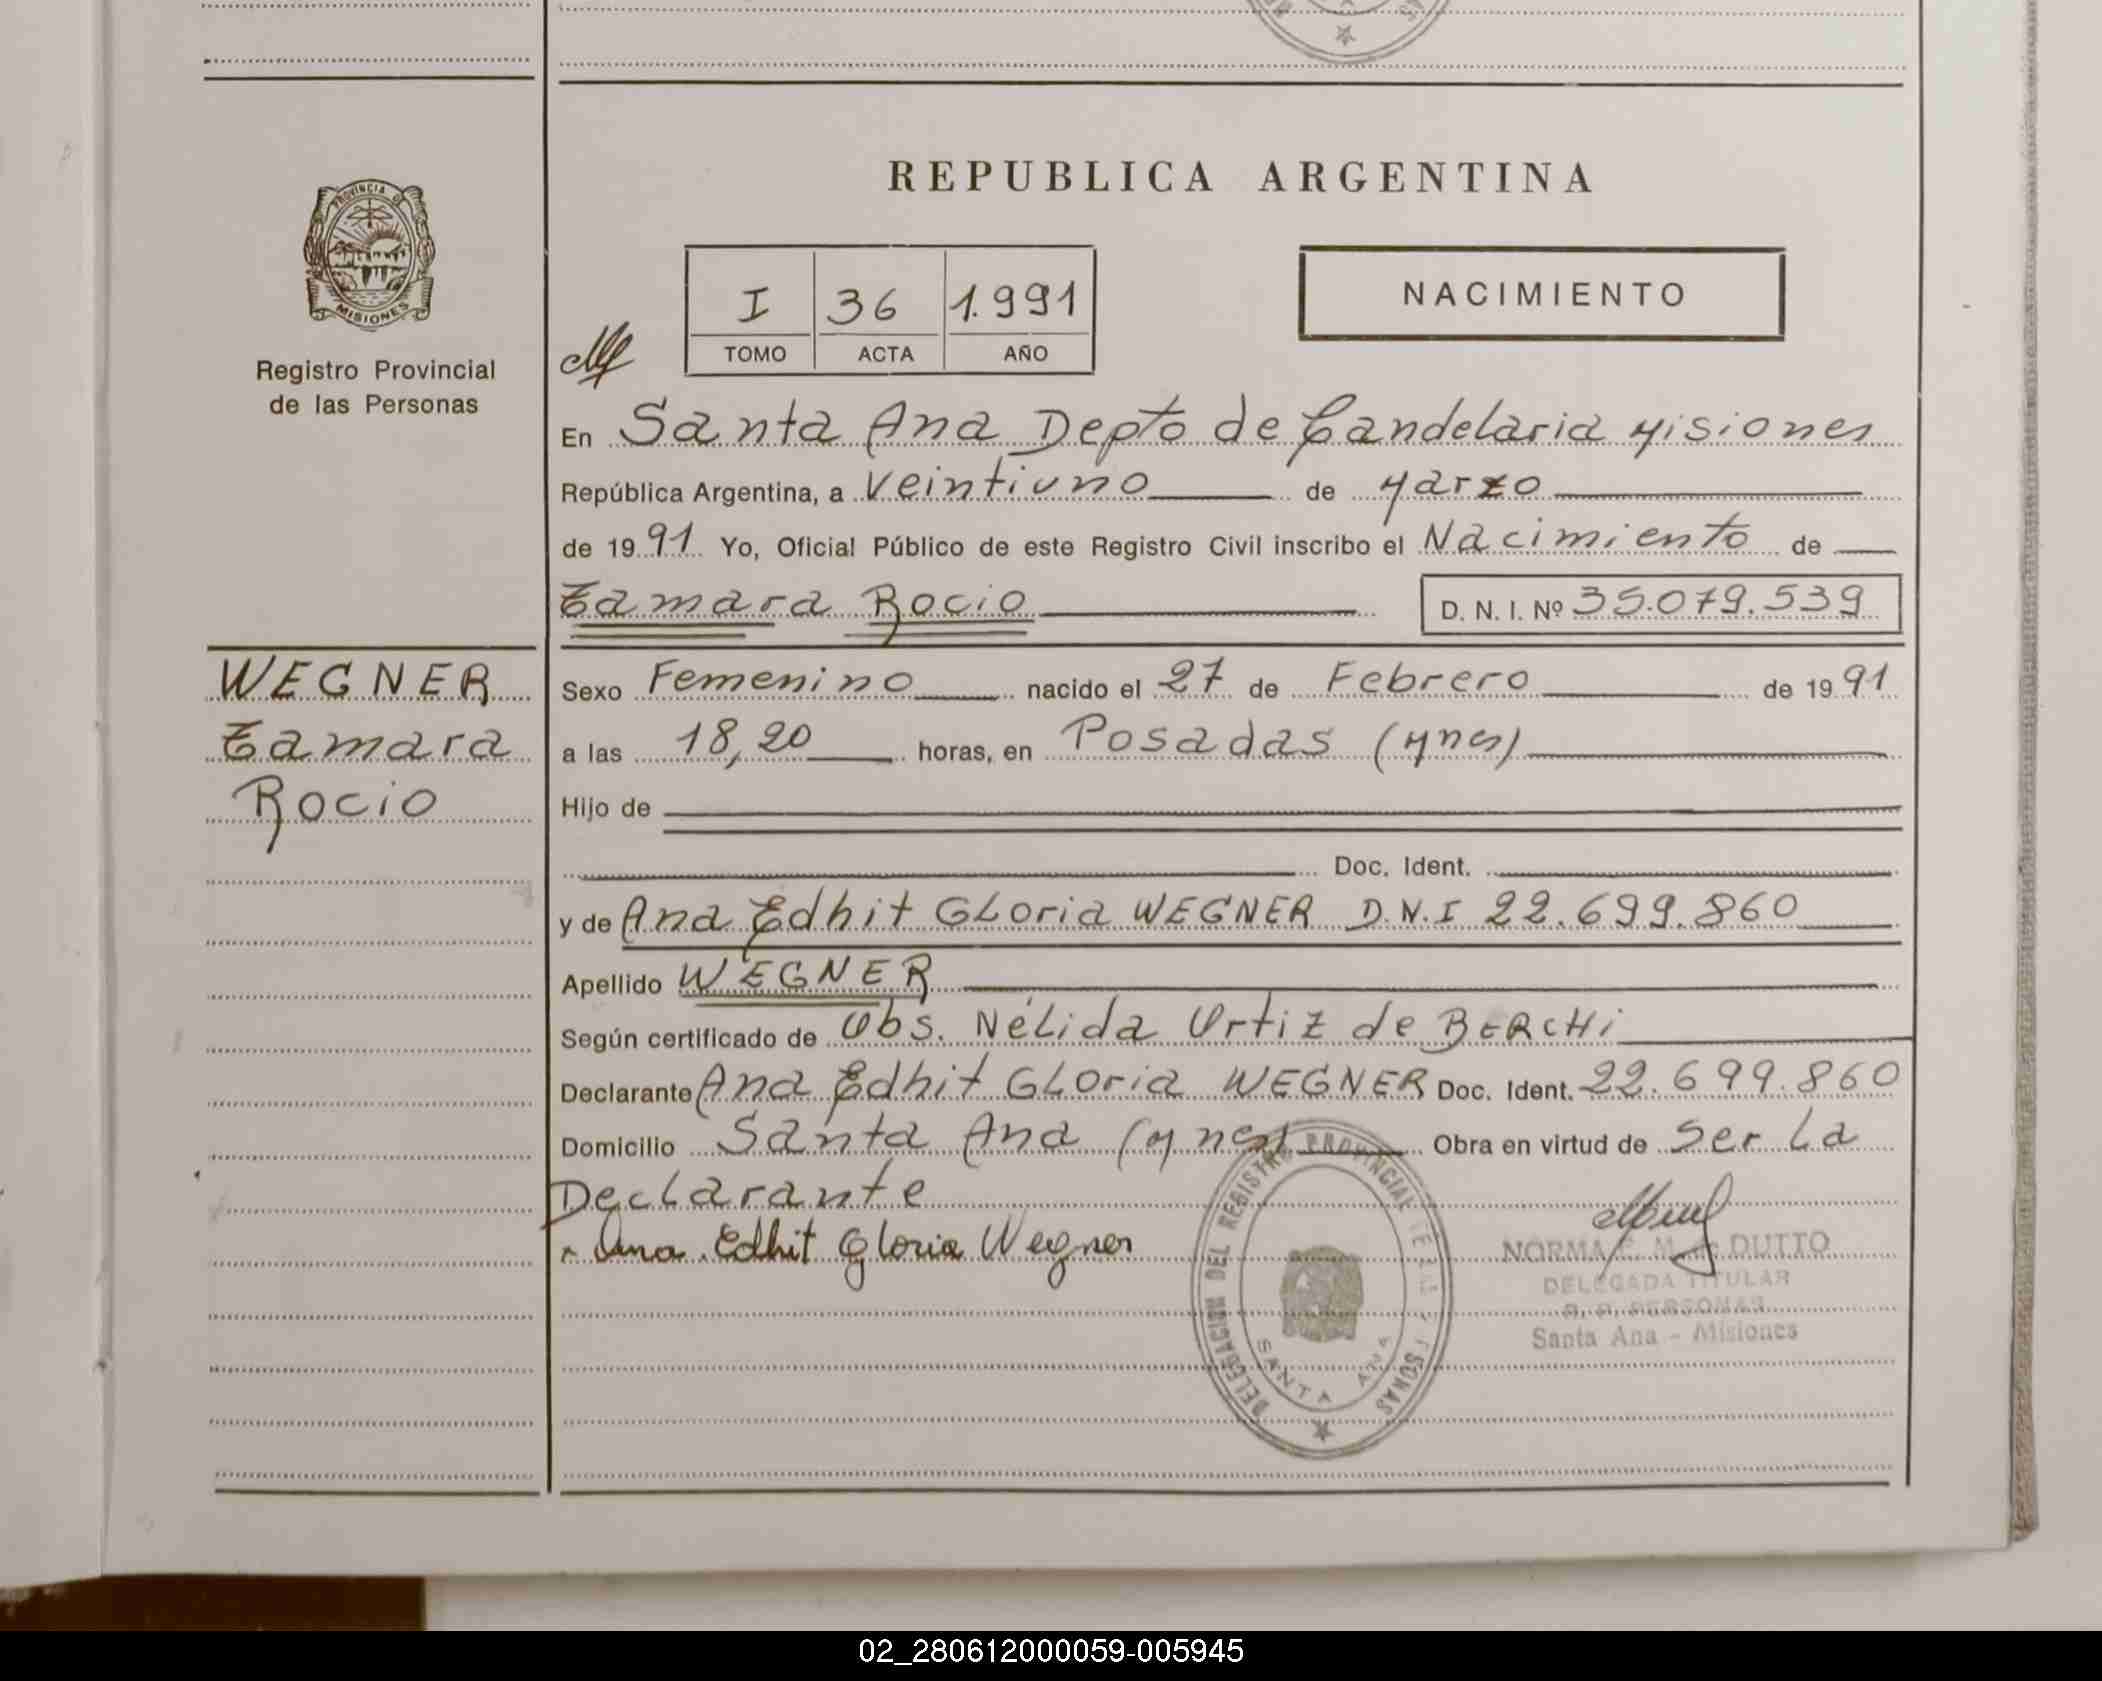 REPUBLICA ARGENTINA
PROVINCIA DE
MISIONES
Registro Provincial
de las Personas
I 36 1.991
TOMO ACTA AÑO
NACIMIENTO
En Santa Ana Depto de Candelaria Misiones
República Argentina, a Veintiuno de Marzo
de 1991 Yo, Oficial Público de este Registro Civil inscribo el Nacimiento de
Tamara Rocio D. N. I. Nº 35.079.539
WEGNER
Tamara
Rocio
Sexo Femenino nacido el 27 de Febrero de 1991
a las 18,20 horas, en Posadas (Mnes)
Hijo de
Doc. Ident.
y de Ana Edhit GLoria WEGNER D.N.I 22.699.860
Apellido WEGNER
Según certificado de Obs. NéLida Ortiz de BERCHi
Declarante Ana Edhit GLoria WEGNER Doc. Ident. 22.699.860
Domicilio Santa Ana (Mnes) Obra en virtud de Ser La
DecLarante
Ana Edhit Gloria Wegner
DELEGACION DEL REGISTRO PROVINCIAL DE LAS PERSONAS
SANTA ANA
NORMA E. M. de DUTTO
DELEGADA TITULAR
R. P. PERSONAS
Santa Ana - Misiones
02_280612000059-005945